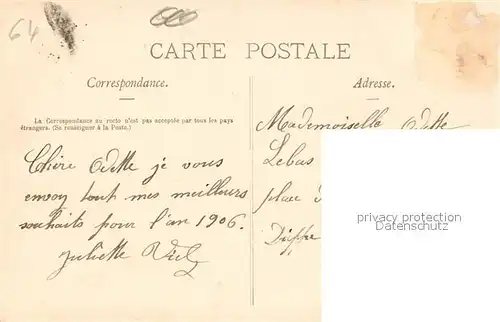 64
CARTE POSTALE
Correspondance.
Adresse.
La Correspondance au recto n'est pas acceptée par tous les pays
étrangers. (Se renseigner à la Poste.)
Chère Odette je vous
envoy tout mes meilleurs
souhaits pour l'an 1906.
Juliette Viel
Mademoiselle Odette
Lebas
place
Dieppe
privacy protection
Datenschutz